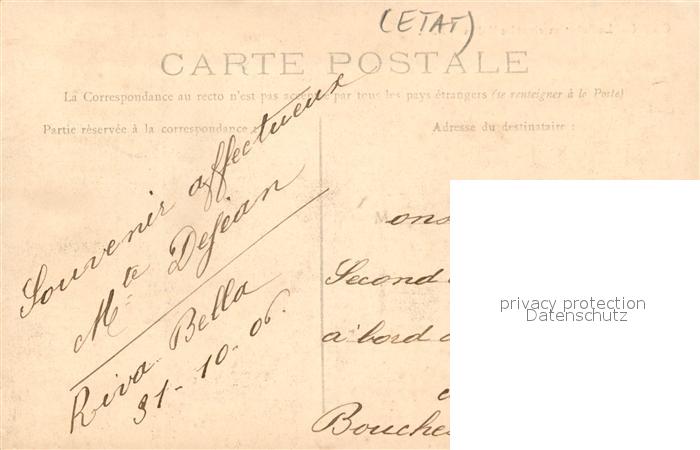 (ETAT)
CARTE POSTALE
La Correspondance au recto n'est pas acceptée par tous les pays étrangers (se renseigner à la Poste)
Partie réservée à la correspondance
Adresse du destinataire :
Souvenir affectueux
Mte Dejean
Riva Bella
31-10-06.
ons
Second
a bord
Bouche
privacy protection
Datenschutz